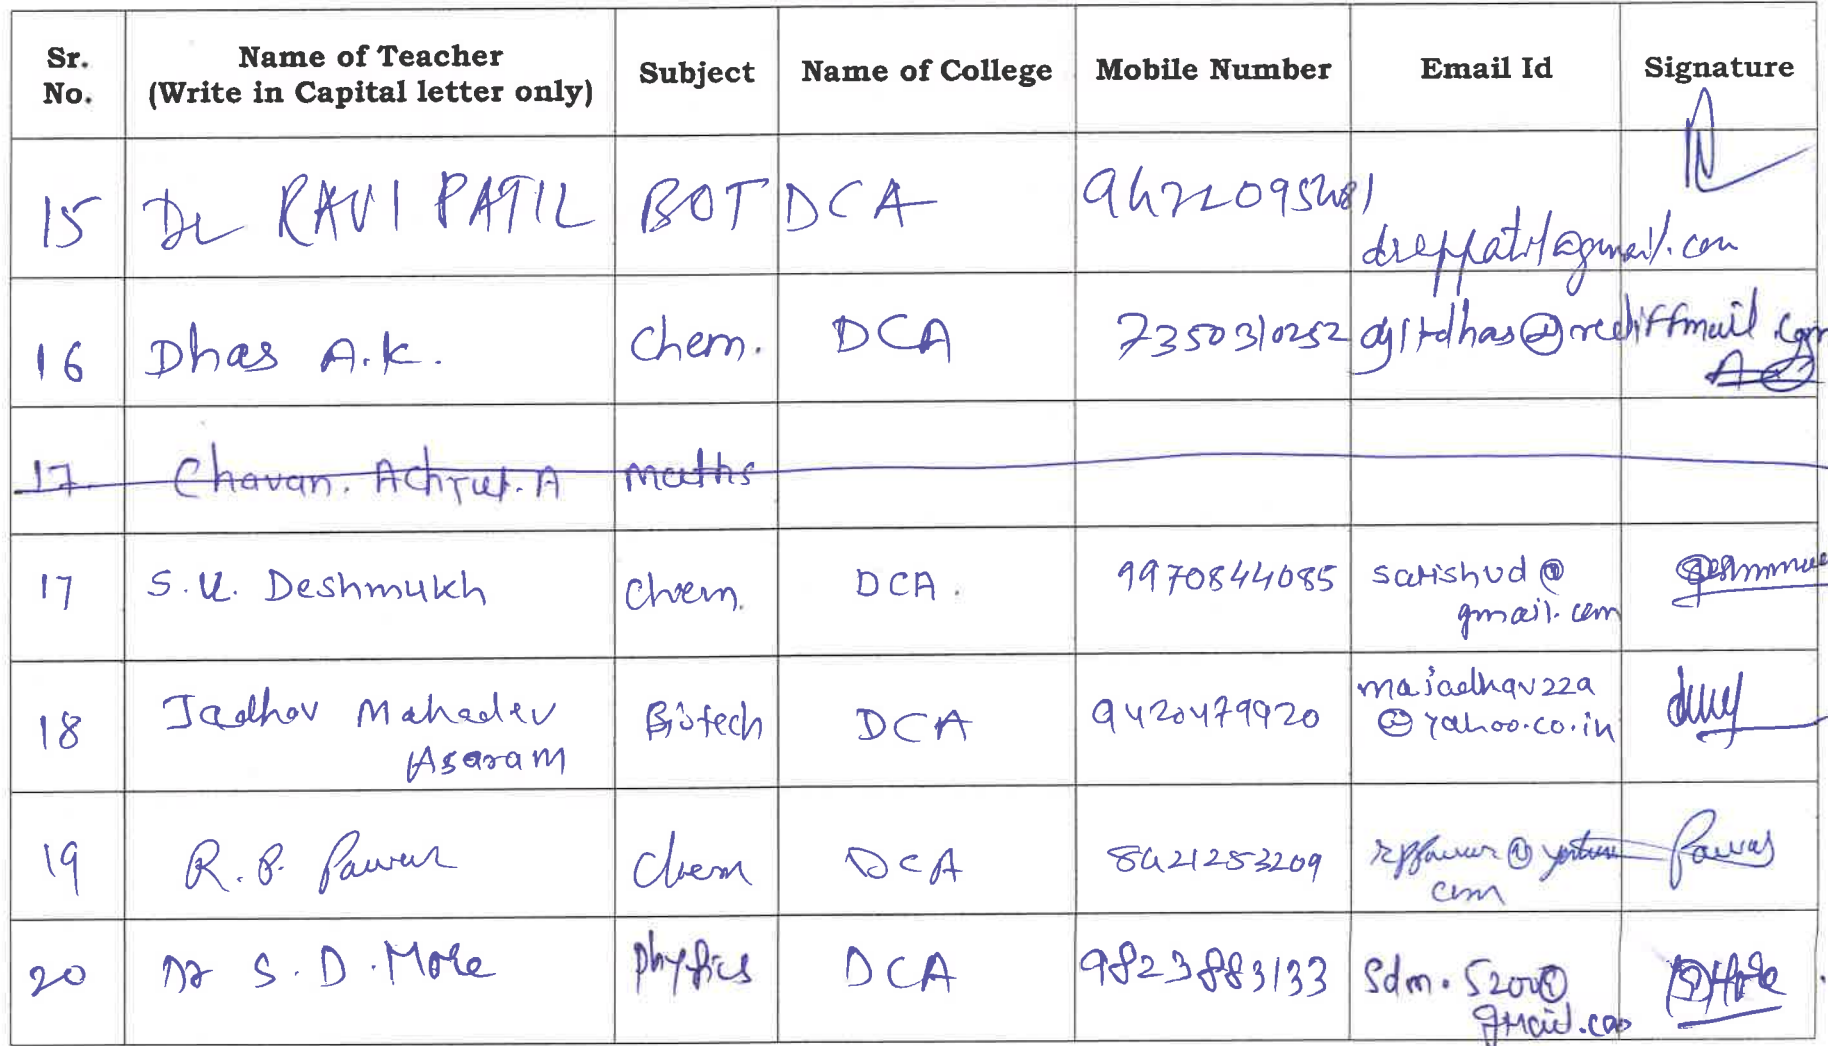 Sr. No. Name of Teacher (Write in Capital letter only) Subject Name of College Mobile Number Email Id Signature
15 Dr RAVI PATIL BOT DCA
16 Dhas A.K. Chem. DCA 7350310252 ajitdhas@rediffmail.com
17 Chavan. Achyut. A Maths
17 S.U. Deshmukh Chem. DCA. 9970844085 satishud@
gmail.com
18 Jadhav Mahadev Asaram Biotech DCA 9420479920 majadhav22a
@yahoo.co.in
19 R.P. Pawar Chem DCA 8421253209 rppawar@
com Pawar
20 Dr S.D. More Physics DCA 9823883133 sdm.5200@
gmail.com